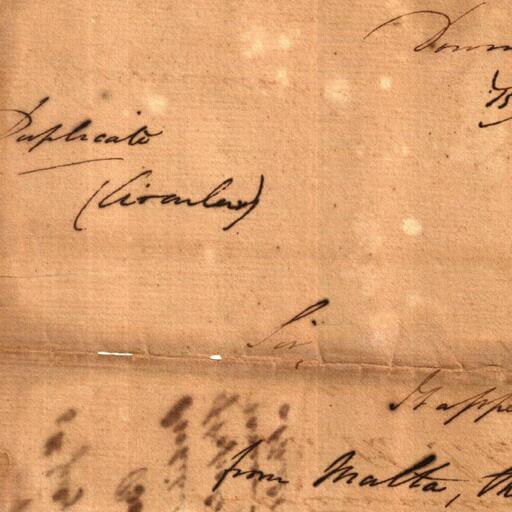 Down
15
Duplicate
(Circular)
Sir,
It appe
from Malta, th